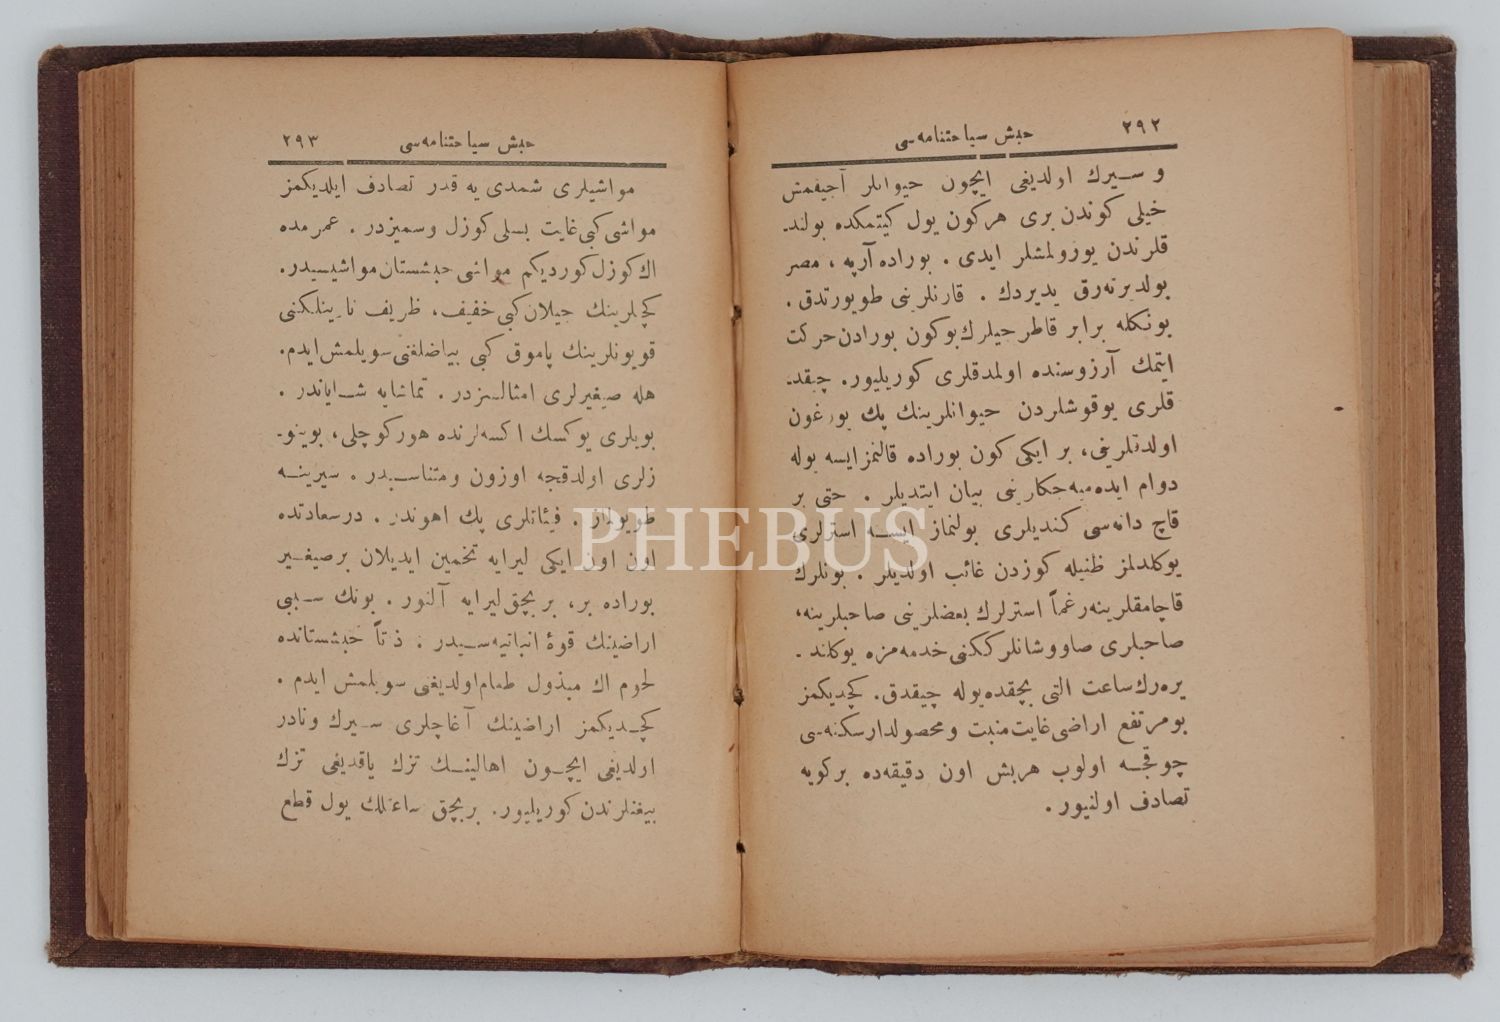 ٢٩٢
حبش سياحتنامه‌سی
و سيرك اولديغی ايچون حيوانلر آجيقمش
خيلی كوندن بری هركون يول كيتمكده بولند-
قلرندن يورولمشلر ايدی . بوراده آرپه ، مصر
بولديرته‌رق يديردك . قارنلرينی طويورتدق .
بونكله برابر قاطرجيلرك بوكون بورادن حركت
ايتمك آرزوسنده اولمدقلری كوريليور . چيقد-
قلری يوقوشلردن حيوانلرينك پك يورغون
اولدقلرينی، بر ايكی كون بوراده قالنمز ايسه يوله
دوام ايده‌ميه‌جكلرينی بيان ايتديلر . حتی بر
قاچ دانه‌سی كنديلری بولنماز ايسه استرلری
يوكلدلمز ظنيله كوزدن غائب اولديلر . بونلرك
قاچامقلرينه رغماً استرلرك بعضلرينی صاحبلرينه،
صاحبلری صاووشانلرككنی خدمه‌مزه يوكلند-
يره‌رك ساعت التی بچقده يوله چيقدق . كچديكمز
بو مرتفع اراضی غايت منبت و محصولدار سكنه‌سی
چوقجه اولوب هربش اون دقيقه‌ده بركويه
تصادف اولنيور .
حبش سياحتنامه‌سی
٢٩٣
مواشيلری شمدی يه قدر تصادف ايلديكمز
مواشی كبی غايت بسلی كوزل و سميزدر . عمرمده
اك كوزل كورديكم مواشی حبشستان مواشيسيدر.
كچيلرينك جيلان كبی خفيف، ظريف نارينلكنی
قويونلرينك پاموق كبی بياضلغنی سويلمش ايدم.
هله صيغيرلری امثالسزدر . تماشايه شاياندر .
بويلری يوكسك اكسه‌لرنده هوركوچلی، بوينو-
زلری اولدقجه اوزون و متناسبدر . سيرينه
طويولماز . فيئاتلری پك اهوندر . درسعادتده
اون اون ايكی ليرايه تخمين ايديلان برصيغير
بوراده بر، بر بچق ليرايه آلنور . بونك سببی
اراضينك قوهٔ انباتيه‌سيدر . ذاتاً حبشستانده
لحوم اك مبذول طعام اولديغنی سويلمش ايدم .
كچديكمز اراضينك آغاچلری سيرك و نادر
اولديغی ايچون اهالينك تزك ياقديغی تزك
ييغنلرندن كوريليور. بربچق ساعتلك يول قطع
PHEBUS